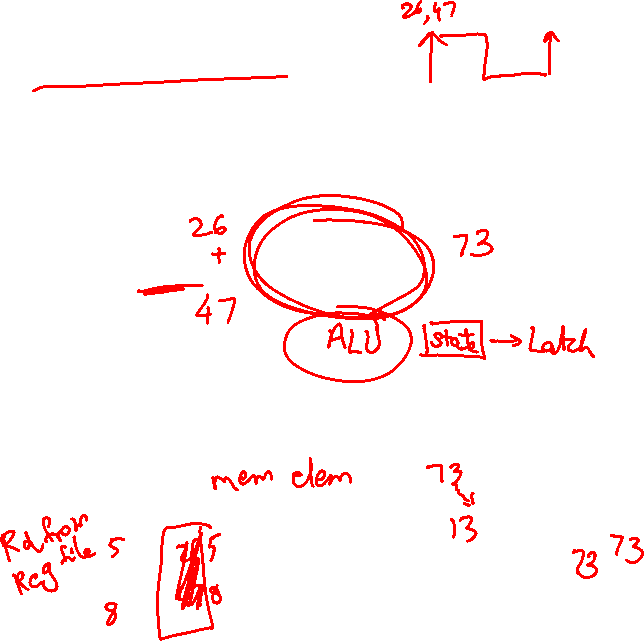 26,47
26
+
73
47
ALU
state → Latch
mem elem
73
13
Rd from
Reg file
5
5
8
8
73
73